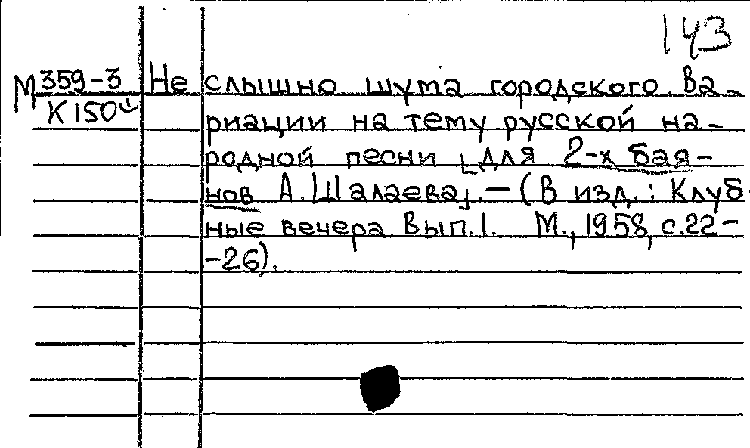 143
М 359-3 Не слышно шума городского. Ва-
К150 риации на тему русской на-
родной песни [для 2-х бая-
нов А. Шалаева]. — (В изд.: Клуб-
ные вечера Вып. 1. М., 1958, с. 22-
-26).